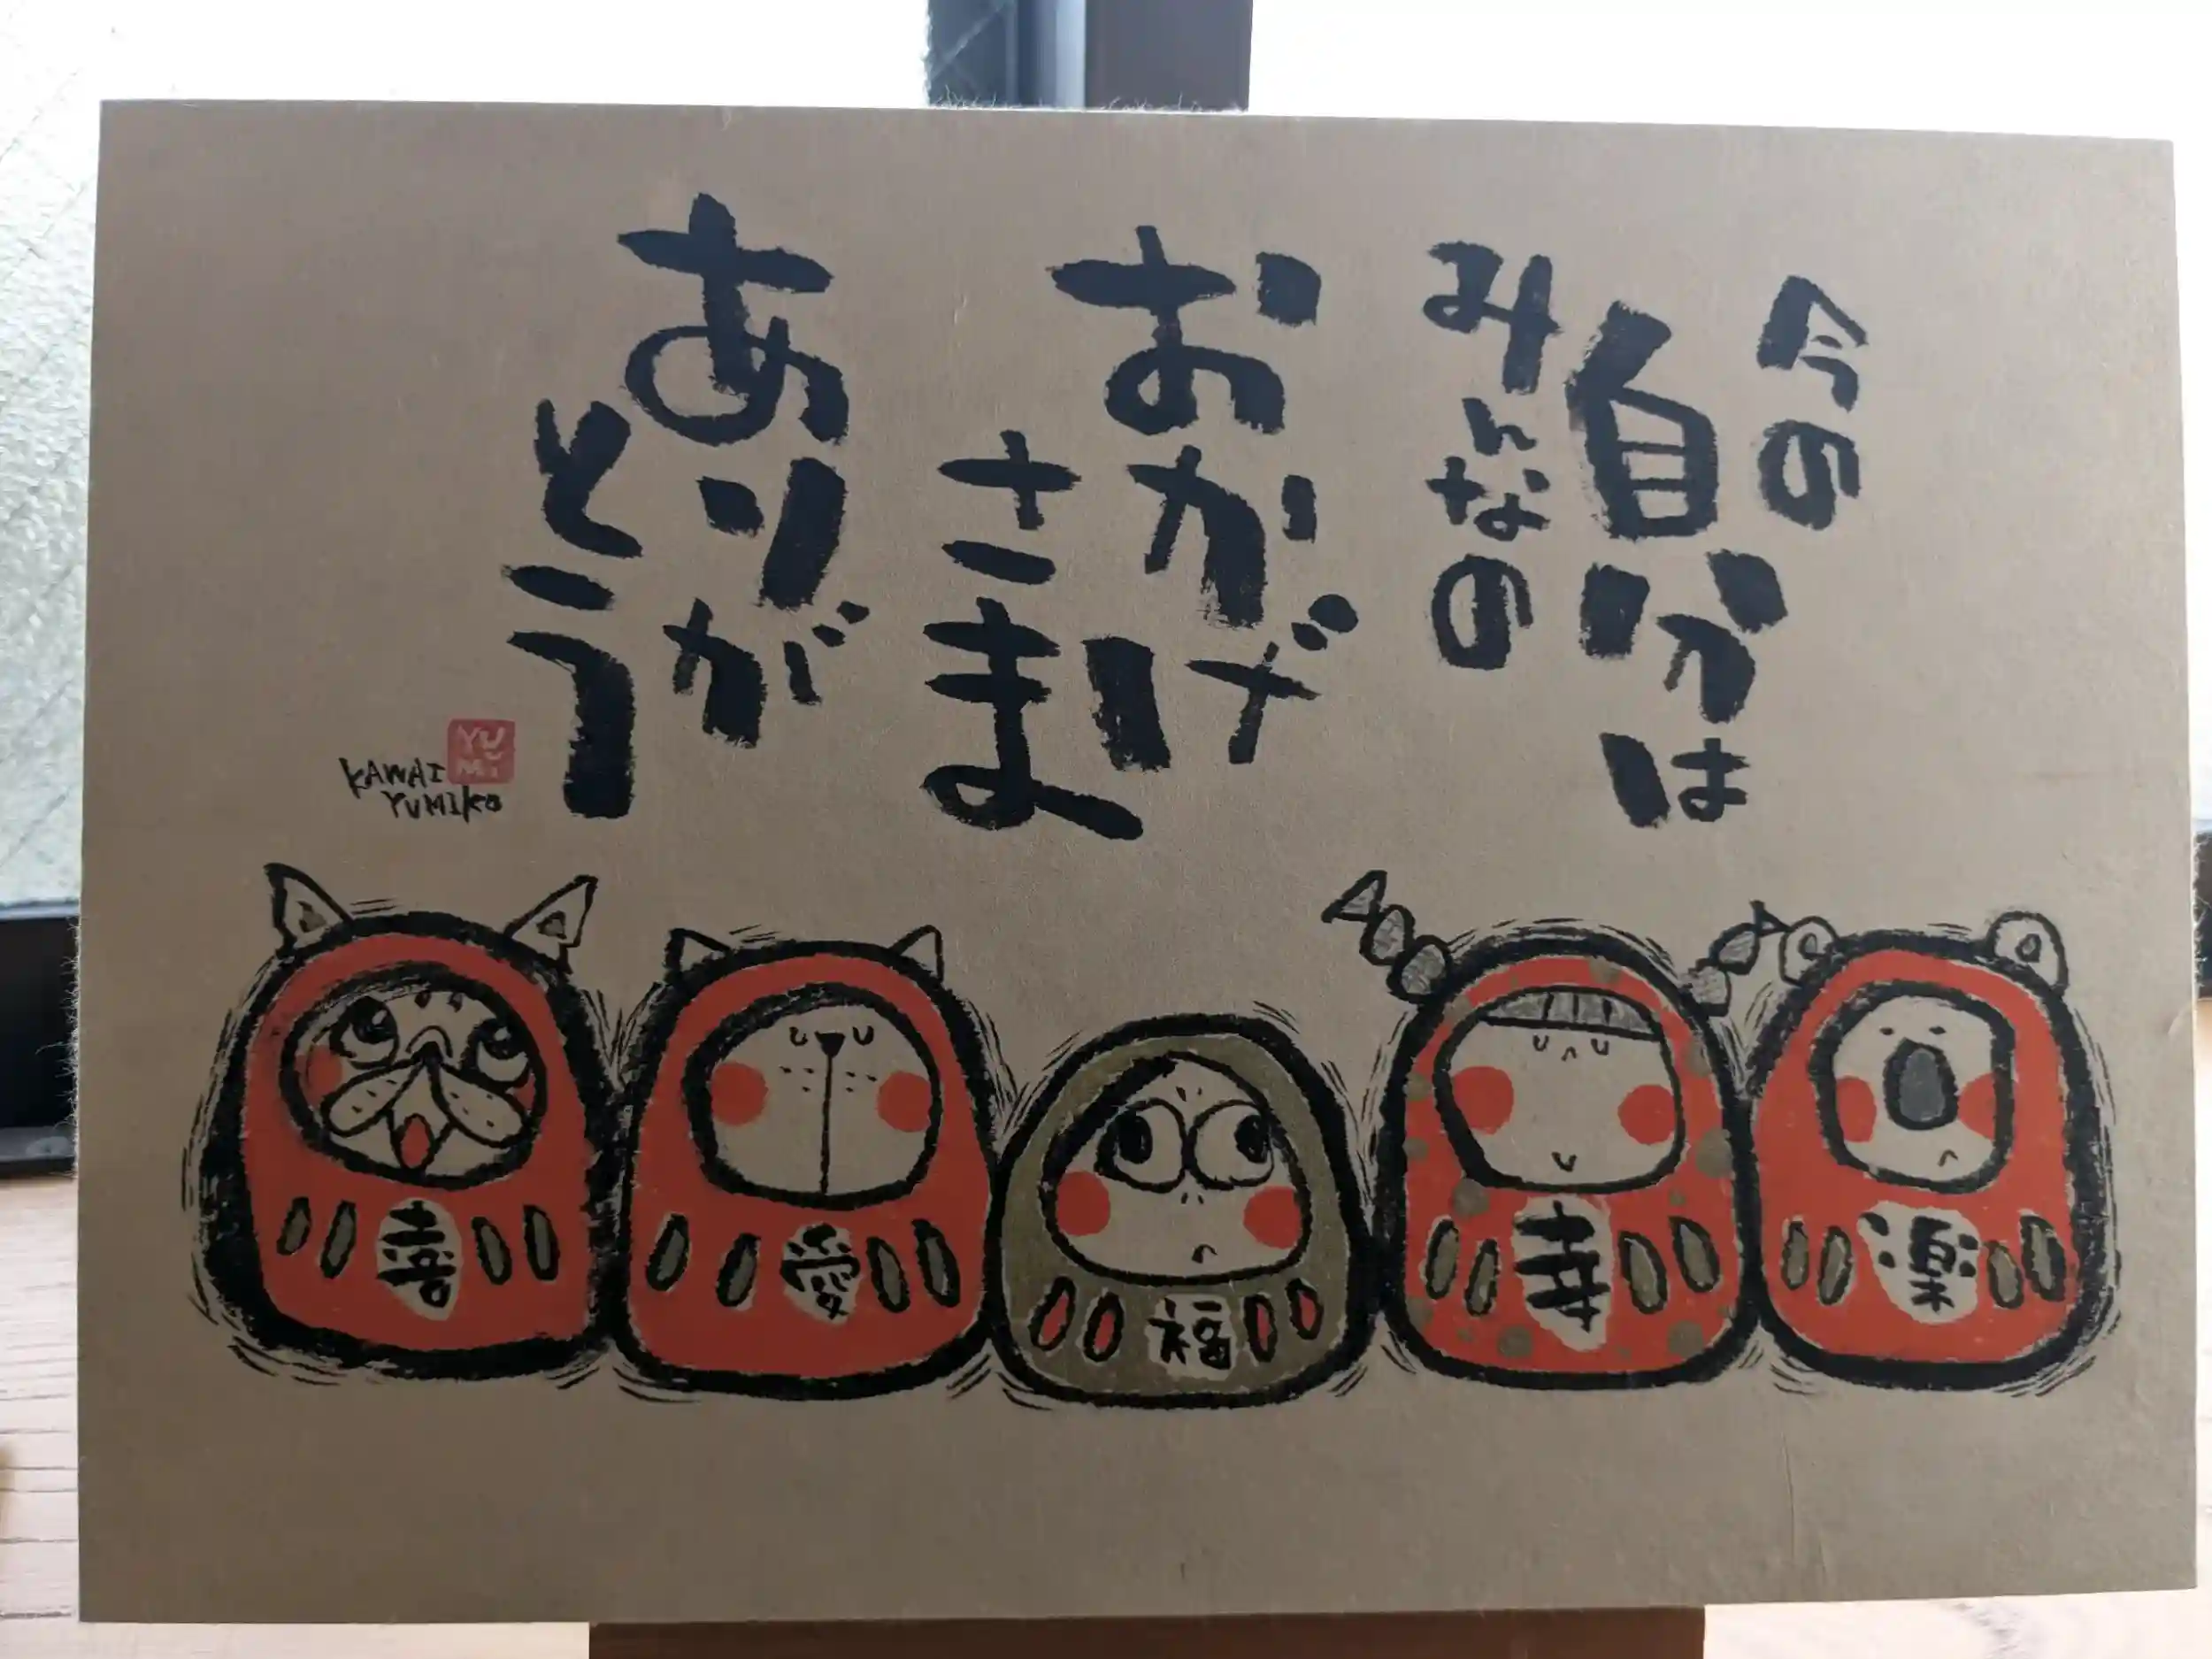 今の
自分は
みんなの
おかげ
さま
ありが
とう
YU
Mi
KAWAI
YUMIKO
喜
愛
福
幸
楽